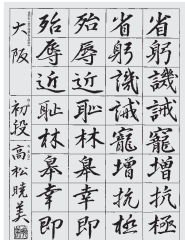 省躬譏誡寵增抗極
省躬譏誡寵增抗極
殆辱近恥林皋幸即
殆辱近耻林皋幸即
大阪 初段 高松曉美